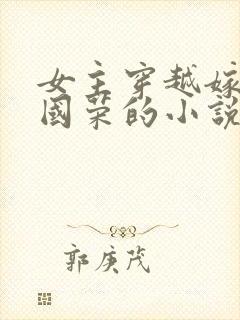 女主穿越嫁
國荣的小説
郭庚茂